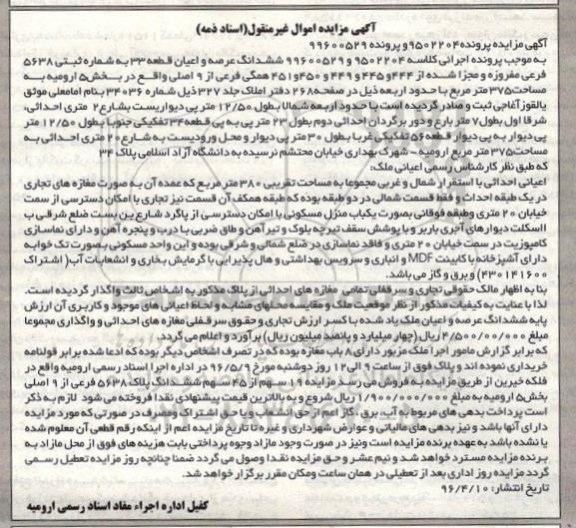 آگهی مزایده اموال غیرمنقول(اسناد ذمه)
آگهی مزایده پرونده۹۵۰۲۲۰۴و پرونده ۹۹۶۰۰۵۲۹
به موجب پرونده اجرائی کلاسه ۹۵۰۲۲۰۴ و ۹۹۶۰۰۵۲۹ ششدانگ عرصه و اعیان قطعه ۳۳ به شماره ثبتی ۵۶۳۸
فرعی مفروزه و مجزا شده از ۴۴۴و ۴۴۵ و ۴۴۹ و ۴۵۰و۴۵۱ همگی فرعی از ۹ اصلی واقع در بخش۵ ارومیه به
مساحت۳۷۵ متر مربع با حدود اربعه ذیل در صفحه۲۶۸ دفتر املاک جلد ۳۲۷ ذیل شماره ۳۴۰۳۶ بنام امامعلی موثق
یالقوز آغاجی ثبت و صادر گردیده است با حدود اربعه شمالا بطول ۱۲/۵۰ متر پی دیواریست بشارع ۲۰ متری احداثی،
شرقا اول بطول۷ متر بارع و دور برگردان احداثی دوم بطول ۲۳ متر پی به پی قطعه۳۴ تفکیکی جنوبا بطول ۱۲/۵۰ متر
پی دیوار به پی دیوار قطعه۵۶ تفکیکی غربا بطول ۳۰ متر پی دیوار و محل ورودیست به شارع ۲۰ متری احداثی به
مساحت۳۷۵ متر مربع ارومیه - شهرک بهداری خیابان محتشم نرسیده به دانشگاه آزاد اسلامی پلاک ۳۴
که طبق نظر کارشناس رسمی اعیانی ملک:
اعیانی احداثی با استقرار شمال و غربی مجموعا به مساحت تقریبی ۳۸۰ متر مربع که عمده آن به صورت مغازه های تجاری
در یک طبقه احداث و فقط قسمت شمالی در دو طبقه بوده که طبقه همکف آن قسمت نیز تجاری با امکان دسترسی از سمت
خیابان ۲۰ متری وطبقه فوقانی بصورت یکباب منزل مسکونی با امکان دسترسی از پاگرد شارع بن بست ضلع شرقی ب
ااسکلت دیوارهای آجری باربر و با پوشش سقف تیرچه بلوک و تیرآهن و طاق ضربی با درب و پنجره آهن و دارای نماسازی
کامپوزیت در سمت خیابان ۲۰ متری و فاقد نماسازی در ضلع شمالی و شرقی بوده و این واحد مسکونی بصورت تک خوابه
دارای آشپزخانه با کابینت MDF و انباری و سرویس بهداشتی و هال پذیرایی با گرمایش بخاری و انشعابات آب( اشتراک
۴۳۰۱۴۱۶۰۰) و برق و گاز می باشد.
بنا به اظهار مالک حقوقی تجاری و سرقفلی تمامی مغازه های احداثی از پلاک مذکور به اشخاص ثالث واگذار گردیده است.
لذا با عنایت به کیفیات مذکور از نظر موقعیت ملک و مقایسه محلهای مشابه و لحاظ اعیانی های موجود و کاربری آن ارزش
پایه ششدانگ عرصه و اعیان ملک یاد شده با کسر ارزش تجاری و حقوق سرقفلی مغازه های احداثی و واگذاری مجموعا
مبلغ ۴/۵۰۰/۰۰۰/۰۰۰ ریال (چهار میلیارد و پانصد میلیون ریال) برآورد و اعلام می گردد.
که برابر گزارش مامور اجرا ملک مزبور دارای ۸ باب مغازه بوده که در تصرف اشخاص دیگر بوده که ادعا شده برابر قولنامه
خریداری نموده اند و پلاک فوق از ساعت ۹ الی ۱۲ روز دوشنبه مورخ ۹۶/۵/۹ در اداره اجرا اسناد رسمی ارومیه واقع در
فلکه خیرین از طریق مزایده به فروش می رسد مزایده ۱۹ سهم از ۴۵ سهم ششدانگ پلاک ۵۶۳۸ فرعی از ۹ اصلی
بخش۵ ارومیه به مبلغ ۱/۹۰۰/۰۰۰/۰۰۰ ریال شروع و به بالاترین قیمت پیشنهادی نقدا فروخته می شود لازم به ذکر
است پرداخت بدهی های مربوط به آب، برق ، گاز اعم از حق انشعاب و یا حق اشتراک ومصرف در صورتی که مورد مزایده
دارای آنها باشد و نیز بدهی های مالیاتی و عوارض شهرداری و غیره تا تاریخ مزایده اعم از اینکه رقم قطعی آن معلوم شده
یا نشده باشد به عهده برنده مزایده است ونیز در صورت وجود مازاد وجوه پرداختی بابت هزینه های فوق از محل مازاد به
برنده مزایده مسترد خواهد شد و نیم عشر و حق مزایده نقدا وصول می گردد ضمنا چنانچه روز مزایده تعطیل رسمی
گردد مزایده روز اداری بعد از تعطیلی در همان ساعت ومکان مقرر برگزار خواهد شد.
تاریخ انتشار: ۹۶/۴/۱۰
کفیل اداره اجراء مفاد اسناد رسمی ارومیه